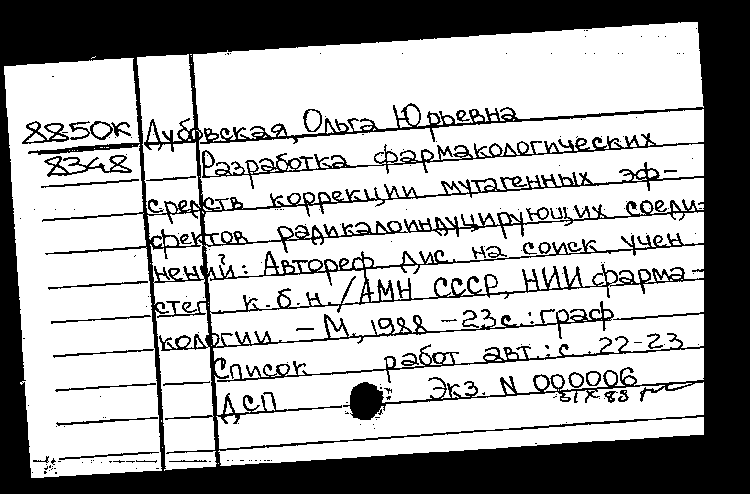 8850к Дубовская, Ольга Юрьевна
8348 Разработка фармакологических
средств коррекции мутагенных эф-
фектов радикалоиндуцирующих соеди-
нений: Автореф. дис. на соиск. учен
степ. к.б.н. / АМН СССР, НИИ фарма-
кологии. - М., 1988 - 23 с.: граф
Список работ авт.: с. 22-23
ДСП Экз. N 000006